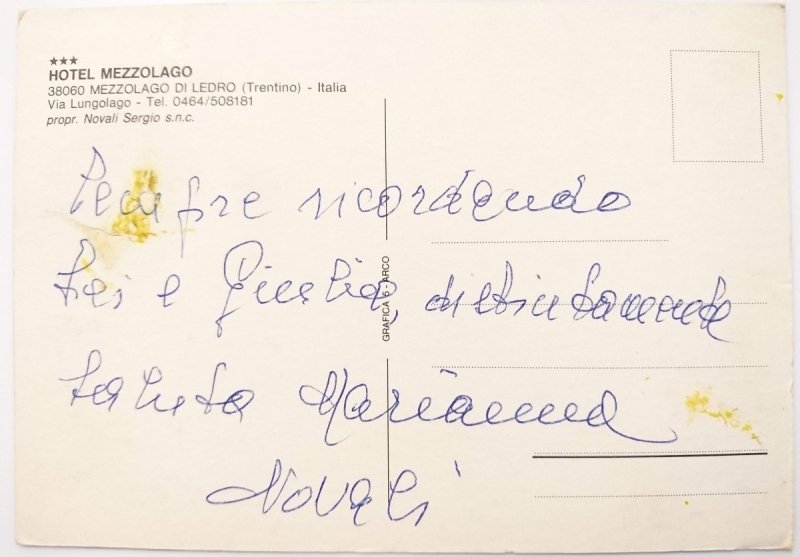 ★★★
HOTEL MEZZOLAGO
38060 MEZZOLAGO DI LEDRO (Trentino) - Italia
Via Lungolago - Tel. 0464/508181
propr. Novali Sergio s.n.c.
GRAFICA 5 - ARCO
ricordando
Lei e Giulia, distintamente
saluta Marianna
Novali